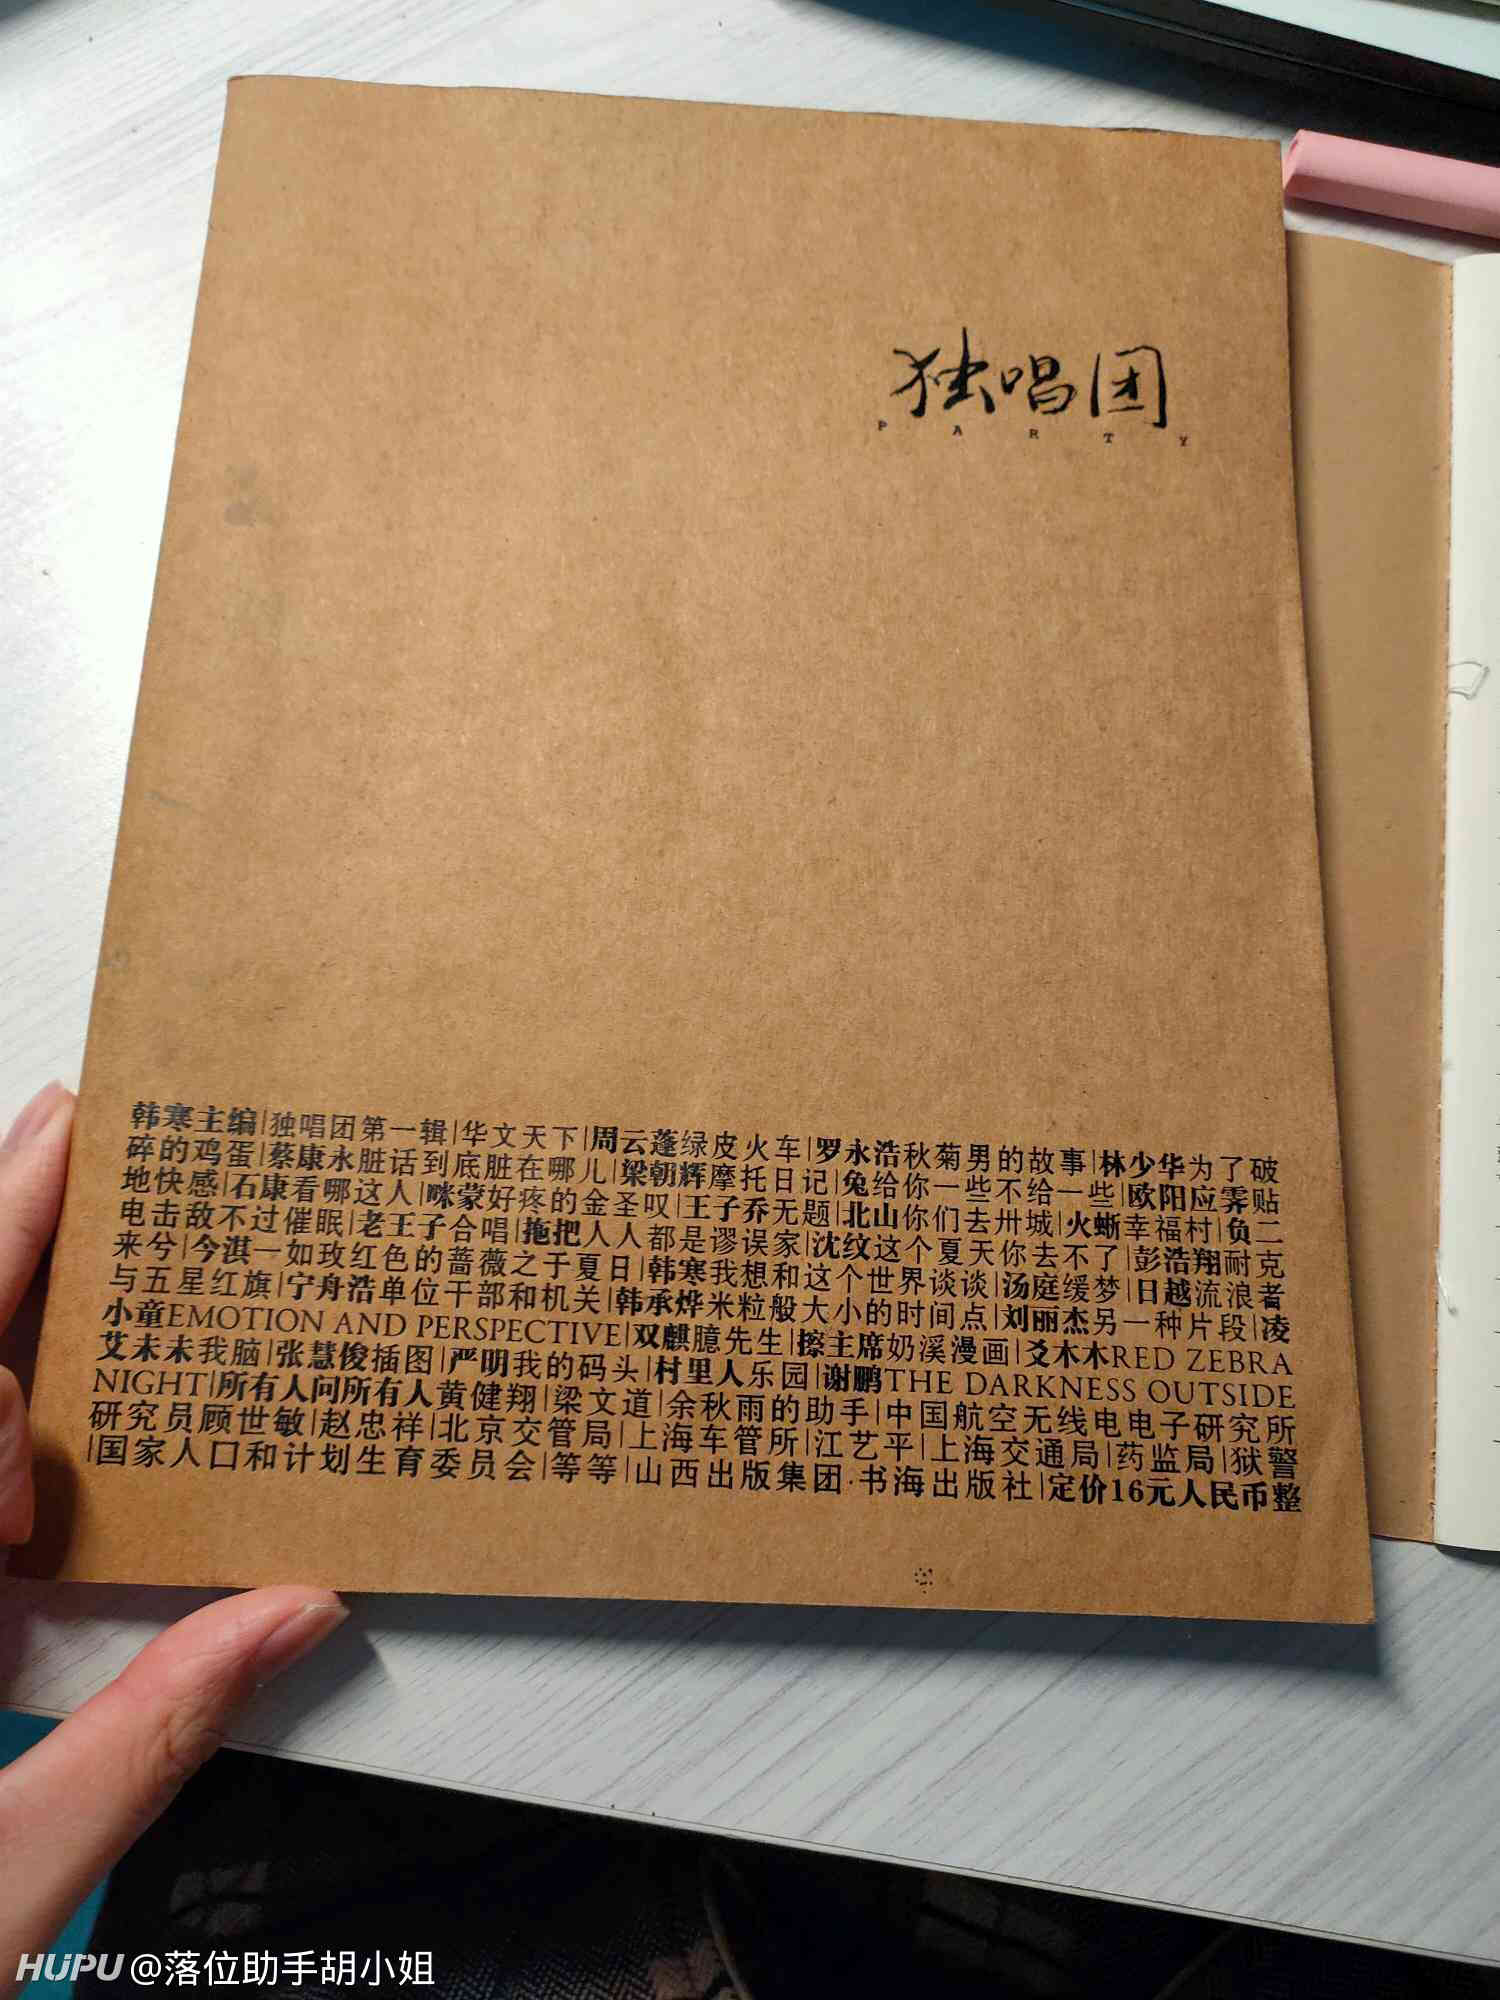 独唱团
PARTY
韩寒主编|独唱团第一辑|华文天下|周云蓬绿皮火车|罗永浩秋菊男的故事|林少华为了破
碎的鸡蛋|蔡康永脏话到底脏在哪儿|梁朝辉摩托日记|兔给你一些不给一些|欧阳应霁贴
地快感|石康看哪这人|咪蒙好疼的金圣叹|王子乔无题|北山你们去卅城|火蜥幸福村|负二
电击敌不过催眠|老王子合唱|拖把人人都是谬误家|沈纹这个夏天你去不了|彭浩翔耐克
来兮|今淇一如玫红色的蔷薇之于夏日|韩寒我想和这个世界谈谈|汤庭缓梦|日越流浪者
与五星红旗|宁舟浩单位干部和机关|韩承烨米粒般大小的时间点|刘丽杰另一种片段|凌
小童EMOTION AND PERSPECTIVE|双麒臆先生|擦主席奶溪漫画|爻木木RED ZEBRA
艾未未我脑|张慧俊插图|严明我的码头|村里人乐园|谢鹏THE DARKNESS OUTSIDE
NIGHT|所有人问所有人黄健翔|梁文道|余秋雨的助手|中国航空无线电电子研究所
研究员顾世敏|赵忠祥|北京交管局|上海车管所|江艺平|上海交通局|药监局|狱警
|国家人口和计划生育委员会|等等|山西出版集团·书海出版社|定价16元人民币整
HUPU @落位助手胡小姐